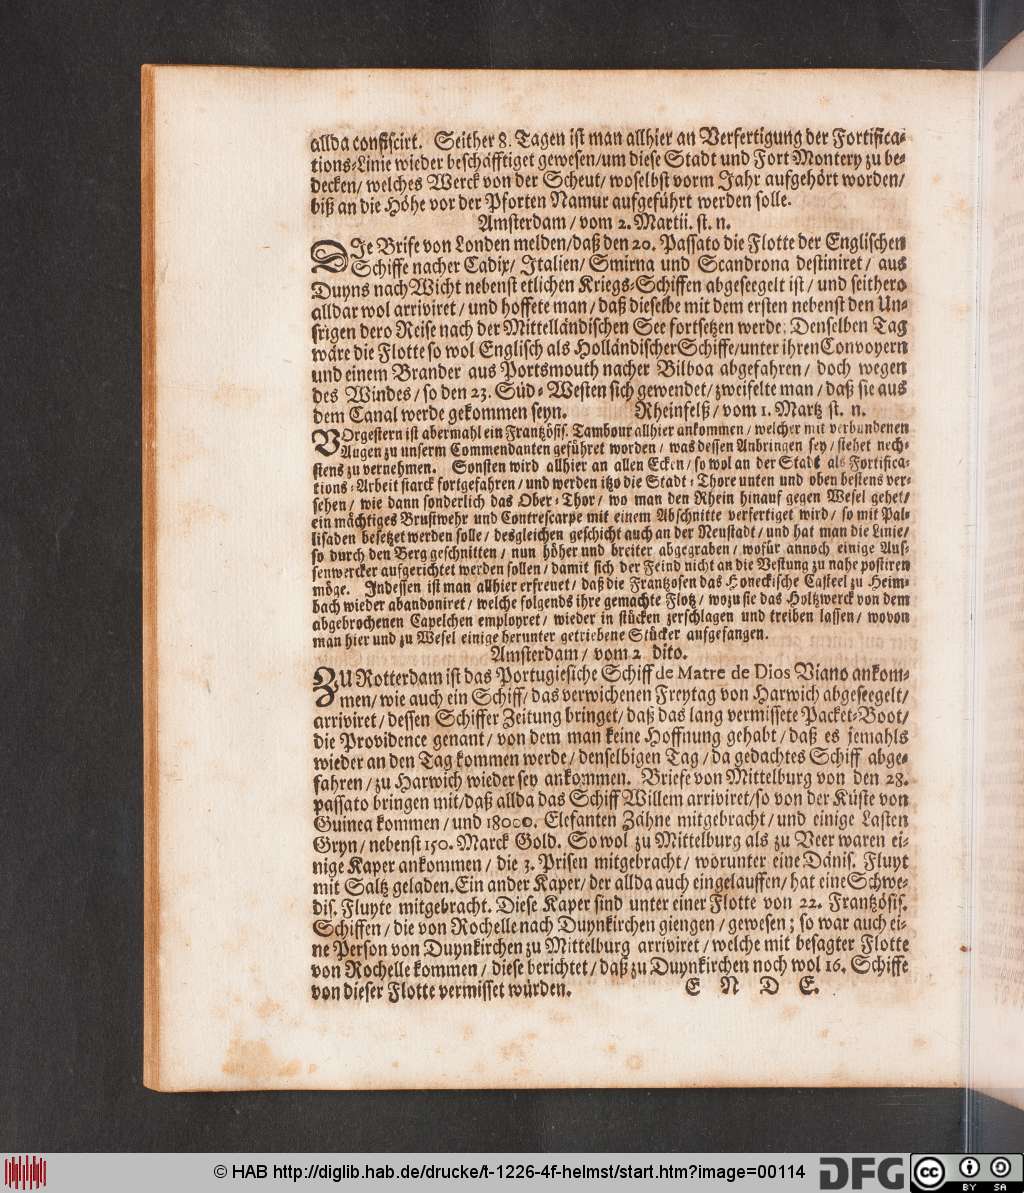 allda confiscirt. Seither 8. Tagen ist man allhier an Verfertigung der Fortifica-
tions-Linie wieder beschäfftiget gewesen/um diese Stadt und Fort Montery zu be-
decken/ welches Werck von der Scheut/ woselbst vorm Jahr aufgehört worden/
biß an die Höhe vor der Pforten Namur aufgeführt werden solle.
Amsterdam/ vom 2. Martii. st. n.
DIe Brife von Londen melden/daß den 20. Passato die Flotte der Englischen
Schiffe nacher Cadix/ Italien/ Smirna und Scandrona destiniret/ aus
Duyns nach Wicht nebenst etlichen Kriegs-Schiffen abgeseegelt ist/ und seithero
alldar wol arriviret/ und hoffete man/ daß dieselbe mit dem ersten nebenst den Un-
srigen dero Reise nach der Mittelländischen See fortsetzen werde. Denselben Tag
wäre die Flotte so wol Englisch als Holländischer Schiffe/unter ihren Convoyern
und einem Brander aus Portsmouth nacher Bilboa abgefahren/ doch wegen
des Windes/ so den 23. Süd-Westen sich gewendet/ zweifelte man/ daß sie aus
dem Canal werde gekommen seyn. Rheinfelß/ vom 1. Martz st. n.
VOrgestern ist abermahl ein Frantzösis. Tambour allhier ankommen/ welcher mit verbundenen
Augen zu unserm Commendanten geführet worden/ was dessen Anbringen sey/ stehet nech-
stens zu vernehmen. Sonsten wird allhier an allen Ecken/ so wol an der Stadt als Fortifica-
tions-Arbeit starck fortgefahren/ und werden itzo die Stadt-Thore unten und oben bestens ver-
sehen/ wie dann sonderlich das Ober-Thor/ wo man den Rhein hinauf gegen Wesel gehet/
ein mächtiges Brustwehr und Contrescarpe mit einem Abschnitte verfertiget wird/ so mit Pal-
lisaden besetzet werden solle/ desgleichen geschicht auch an der Neustadt/ und hat man die Linie/
so durch den Berg geschnitten/ nun höher und breiter abgegraben/ wofür annoch einige Aus-
senwercker aufgerichtet werden sollen/ damit sich der Feind nicht an die Vestung zu nahe postiren
möge. Indessen ist man allhier erfreuet/ daß die Frantzosen das Honeckische Casteel zu Heim-
bach wieder abandoniret/ welche folgends ihre gemachte Flotz/ wozu sie das Holtzwerck von dem
abgebrochenen Capelchen employret/ wieder in stücken zerschlagen und treiben lassen/ wovon
man hier und zu Wesel einige herunter getriebene Stücker aufgefangen.
Amsterdam/ vom 2 dito.
ZU Rotterdam ist das Portugiesiche Schiff de Matre de Dios Viano ankom-
men/ wie auch ein Schiff/ das verwichenen Freytag von Harwich abgeseegelt/
arriviret/ dessen Schiffer Zeitung bringet/ daß das lang vermissete Packet-Boot/
die Providence genant/ von dem man keine Hoffnung gehabt/ daß es jemahls
wieder an den Tag kommen werde/ denselbigen Tag/ da gedachtes Schiff abge-
fahren/ zu Harwich wieder sey ankommen. Briefe von Mittelburg von den 28.
passato bringen mit/daß allda das Schiff Willem arriviret/so von der Küste von
Guinea kommen/ und 18000. Elefanten Zähne mitgebracht/ und einige Lasten
Gryn/ nebenst 150. Marck Gold. So wol zu Mittelburg als zu Veer waren ei-
nige Kaper ankommen/ die 3. Prisen mitgebracht/ worunter eine Dänis. Fluyt
mit Saltz geladen. Ein ander Kaper/ der allda auch eingelauffen/ hat eine Schwe-
dis. Fluyte mitgebracht. Diese Kaper sind unter einer Flotte von 22. Frantzösis.
Schiffen/ die von Rochelle nach Duynkirchen giengen/ gewesen; so war auch ei-
ne Person von Duynkirchen zu Mittelburg arriviret/ welche mit besagter Flotte
von Rochelle kommen/ diese berichtet/ daß zu Duynkirchen noch wol 16. Schiffe
von dieser Flotte vermisset würden. E N D E.
© HAB http://diglib.hab.de/drucke/t-1226-4f-helmst/start.htm?image=00114 DFG cc BY SA